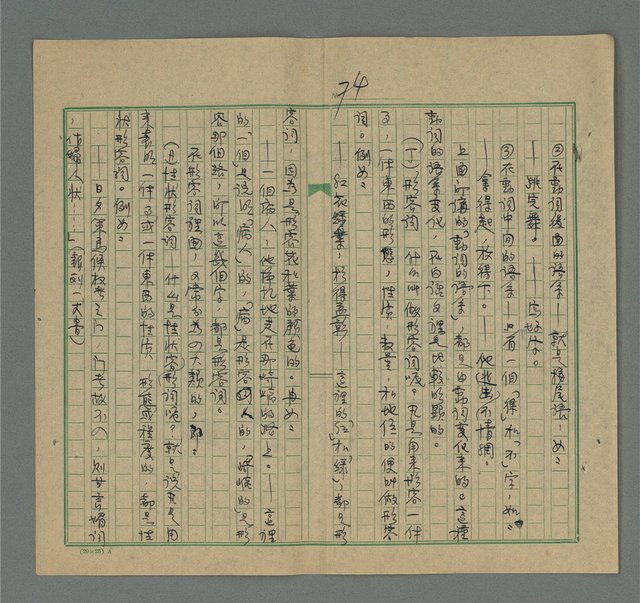 74
②在動詞後面的語系——就是語尾語，如：
——跳完舞。——寫好字。
③在動詞中間的語系——只有一個「得」和「不」字，如：
——拿得起，放得下。——他逃不出情網。
上面所講的「動詞的語系」，都是由動詞變化來的。這種
動詞的語系變化，在白話文裡是比較明顯的。
（丁）形容詞 什么叫做形容詞呢？凡是用來形容一件
事，一件東西的形態，性質，數量，和地位的便叫做形容
詞。例如：
——紅花綠葉，——這裡的「紅」和「綠」，都是形
容詞，因為是形容花和葉的顏色的。再如：
——一個病人，他單獨地走在那崎嶇的路上。——這裡
的「一個」是說明「病人」的，「病」是形容人的，「崎嶇的」是形
容那個路，所以這幾個字，都是形容詞。
在形容詞裡面，又常分為四大類的，即：
（1）性狀形容詞——什么是性狀形容詞呢？就是說凡是用
來表明一件事或一件東西的性質，形態或程度的，都是性
狀形容詞。例如：
——日夕策馬候權者之門，門者故不入，則甘言媚詞
，作婦人狀……」（報劉一丈書）
(20×25) A